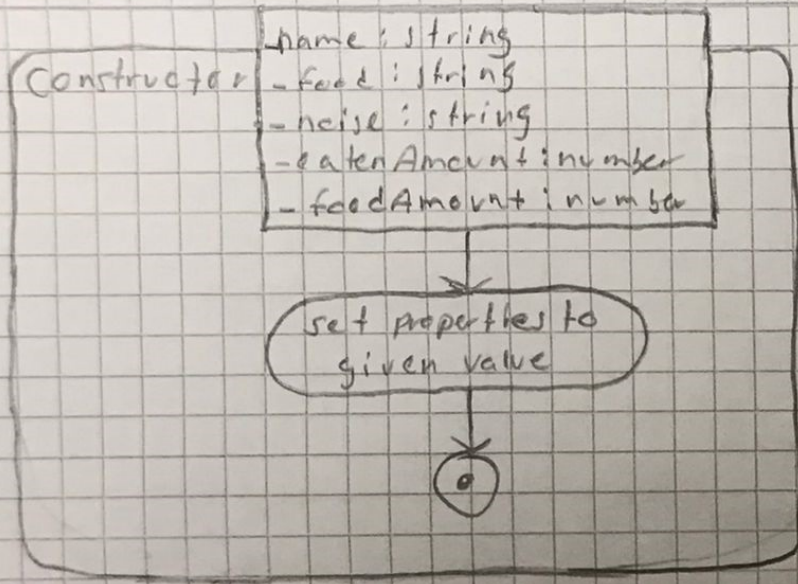 Constructor
-name : string
-food : string
-noise : string
-eatenAmount : number
-foodAmount : number
set properties to
given value